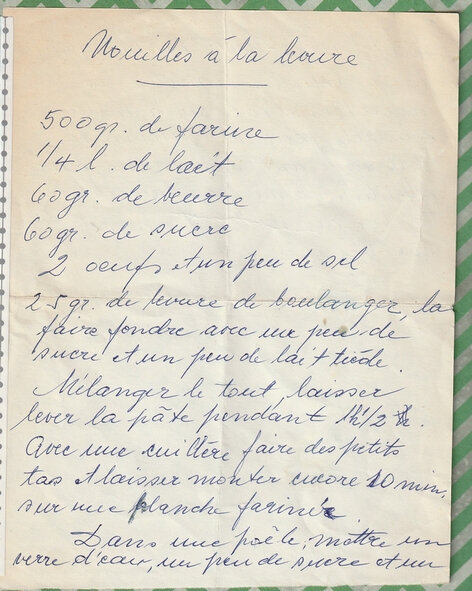 Nouilles à la levure
500gr. de farine
1/4 l. de lait
60gr. de beurre
60gr. de sucre
2 oeufs et un peu de sel
25 gr. de levure de boulanger, la
faire fondre avec un peu de
sucre et un peu de lait tiède.
Mélanger le tout, laisser
lever la pâte pendant 1h1/2
Avec une cuillère faire des petits
tas et laisser monter encore 10 min,
sur une planche farinée
Dans une poêle, mettre un
verre d'eau, un peu de sucre et un